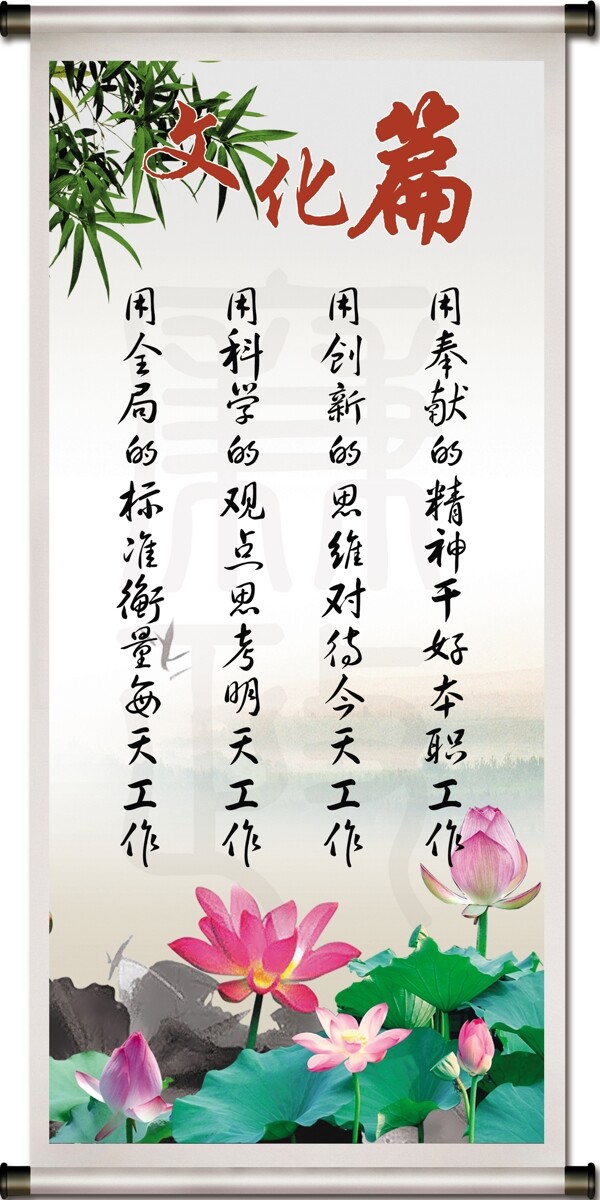 文化篇
用奉献的精神干好本职工作
用创新的思维对待今天工作
用科学的观点思考明天工作
用全局的标准衡量每天工作